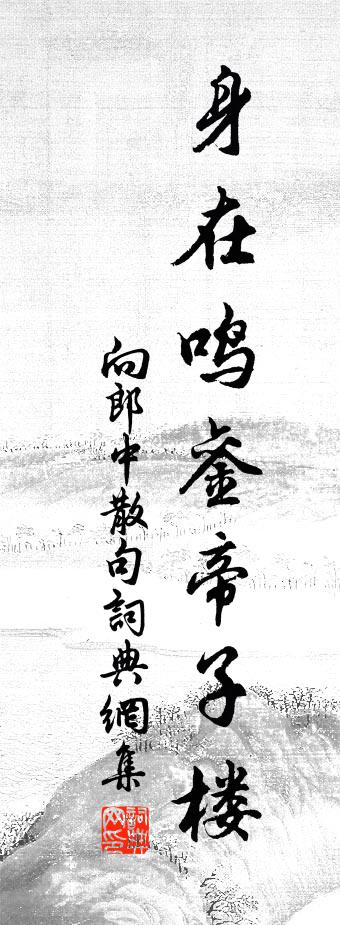 身在鸣銮帝子楼
向郎中散句詞典網集